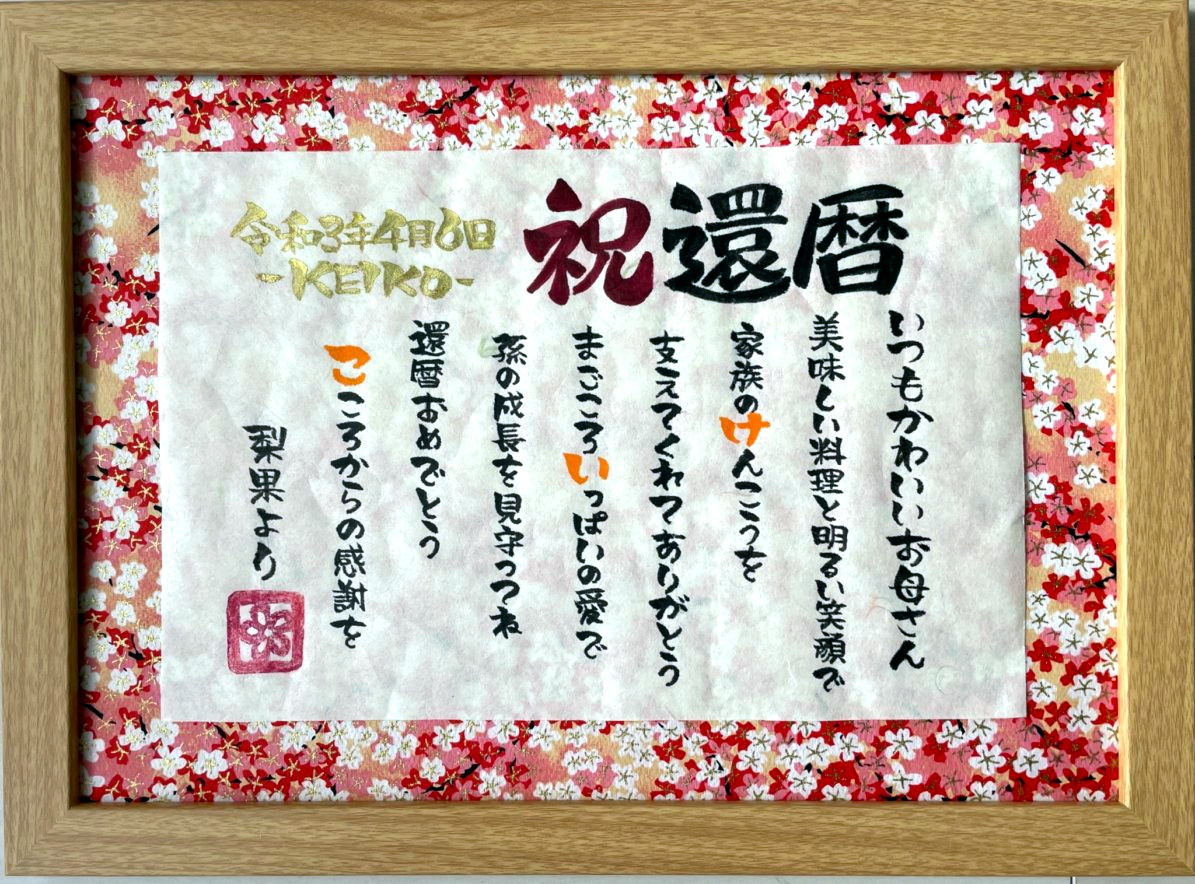 祝還暦
令和3年4月6日
-KEIKO-
いつもかわいいお母さん
美味しい料理と明るい笑顔で
家族のけんこうを
支えてくれてありがとう
まごころいっぱいの愛で
孫の成長を見守ってね
還暦おめでとう
こころからの感謝を
梨果より